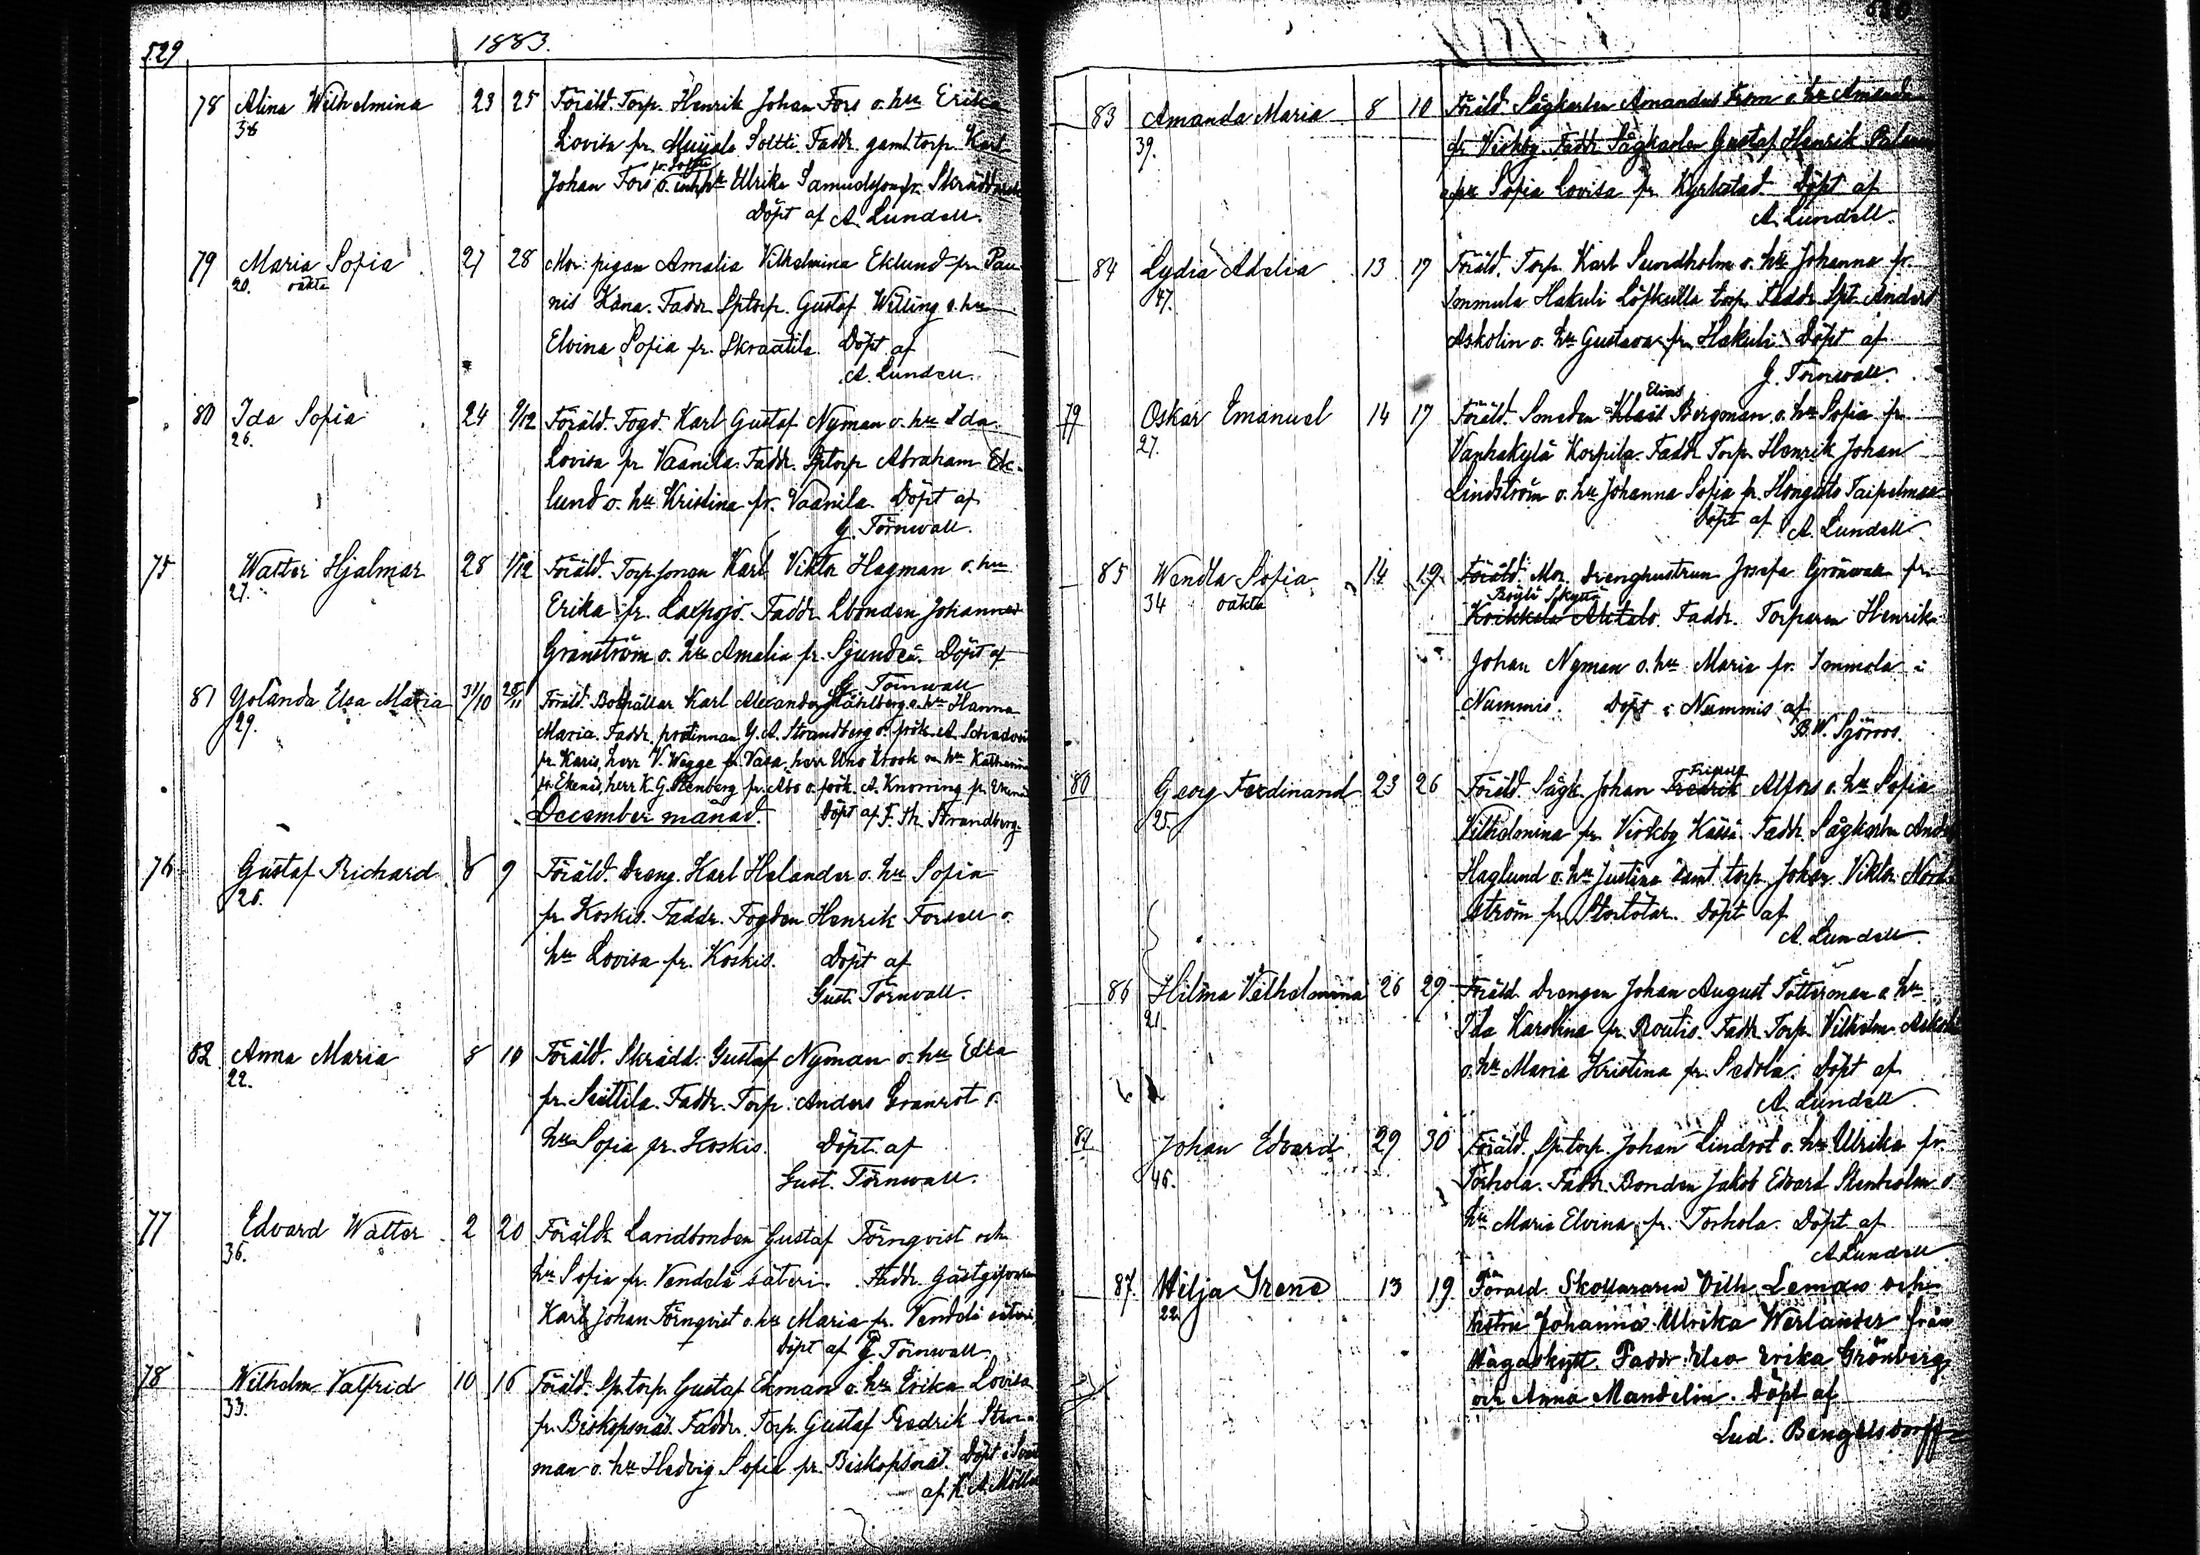 529
1883.
78 Alina Wilhelmina 23 25 Föräld. Torp. Henrik Johan Fors o. hu Erika
38
Lovisa fr. Muijala Soltti. Faddr. gaml. torp. Karl
fr. Soltti
Johan Fors o. Ulrika Samuelsson fr. Skräddars
Döpt af A. Lundell.
79 Maria Sofia 27 28 Mor: pigan Amalia Vilhelmina Eklund fr. Pau
20. oäkta
nis Kåna. Faddr. Sptorp. Gustaf Willing o. hu
Elvina Sofia fr. Skraatila. Döpt af
A. Lundell.
80 Ida Sofia 24 9/12 Föräld. Fogd. Karl Gustaf Nyman o. hu Ida
26.
Lovisa fr. Vaanila. Faddr. Sptorp. Abraham Ek-
lund o. hu Kristina fr. Vaanila. Döpt af
G. Törnwall.
75 Walter Hjalmar 28 1/12 Föräld. Torp.sonen Karl Viktor Hagman o. hu
27.
Erika fr. Laxpojo. Faddr. Lbonden Johannes
Granström o. hu Amalia fr. Sjundeå. Döpt af
G. Törnwall
81 Yolanda Elsa Maria 31/10 25/11 Föräld. Bokhållar Karl Alexander Ståhlberg o. hu Hanna
29.
Maria. Faddr. G. A. Strandberg o. frök. A.
fr. Karis, herr V. Wegge fr. Vasa, herr Uno Krook o. hu Katharina
fr. Ekenäs, herr K. G. Stenberg fr. Åbo o. frök. A. Knorring fr. Ekenäs
December månad. Döpt af F. Th. Strandberg.
76 Gustaf Richard 8 9 Föräld. Dreng. Karl Helander o. hu Sofia
26.
fr. Koskis. Faddr. Fogden Henrik Forsell o.
hu Lovisa fr. Koskis. Döpt af
Gust. Törnwall.
82 Anna Maria 8 10 Föräld. Skrädd. Gustaf Nyman o. hu Edla
22.
fr. Seittila. Faddr. Torp. Anders Granrot o.
hu Sofia fr. Koskis. Döpt af
Gust. Törnwall.
77 Edvard Walter 2 20 Föräldr. Landbonden Gustaf Törnqvist och
36.
hu Sofia fr. Vendelä säteri. Faddr. Gästgifvaren
Karl Johan Törnqvist o. hu Maria fr. Vendelä säteri
Döpt af G. Törnwall
78 Wilhelm Valfrid 10 16 Föräld. Sp.torp. Gustaf Ekman o. hu Erika Lovisa
33.
fr. Biskopsnäs. Faddr. Torp. Gustaf Fredrik Sten-
man o. hu Hedvig Sofia fr. Biskopsnäs. Döpt i
af K. A.
83 Amanda Maria 8 10 Föräld. Sågkarlen Amandus From o. hu Amanda
39.
fr. Virkby. Faddr. Sågkarlen Gustaf Henrik
o. hu Sofia Lovisa fr. Kyrkstad. Döpt af
A. Lundell.
84 Lydia Adelia 13 17 Föräld. Torp. Karl Sundholm o. hu Johanna fr.
47.
Immula Hakuli Löfkulla torp. Faddr. Spt. Anders
Askolin o. hu Gustava fr. Hakuli. Döpt af
G. Törnwall.
79 Oskar Emanuel 14 17 Föräld. Smeden Klas Elias Bergman o. hu Sofia fr.
27.
Vanhakylä Korpila. Faddr. Torp. Henrik Johan
Lindström o. hu Johanna Sofia fr. Hongisto Taipelmaa
Döpt af A. Lundell
85 Wendla Sofia 14 19 Föräld. Mor. Drenghustrun Josefa Grönwall fr.
34 oäkta
Böylä Skyttä
Koikkala Ahtalo. Faddr. Torparen Henrik
Johan Nyman o. hu Maria fr. Immola i
Nummis. Döpt i Nummis af
B. W. Sjöroos.
80 Georg Ferdinand 23 26 Föräld. Sågk. Johan Fredrik Alfors o. hu Sofia
25.
Vilhelmina fr. Virkby Kassa. Faddr. Sågkarlen
Haglund o. hu Justina samt torp. Johan Viktor Nord-
ström fr. Storlotar. Döpt af
A. Lundell.
86 Hilma Vilhelmina 26 29 Föräld. Drengen Johan August Tötterman o. hu
21.
Ida Karolina fr. Routio. Faddr. Torp. Vilhelm
o. hu Maria Kristina fr. Pedola. Döpt af
A. Lundell
81 Johan Edvard 29 30 Föräld. Sp.torp. Johan Lindrot o. hu Ulrika fr.
46.
Torhola. Faddr. Bonden Jakob Edvard Stenholm o.
hu Maria Elvina fr. Torhola. Döpt af
A. Lundell
87. Hilja Irene 13 19 Föräld. Skolläraren Vilh. Leman och
22.
hustru Johanna Ulrika Werlander från
Faddr. Erika Grönberg
och Anna Mandelin. Döpt af
Lud. Bengelsdorff